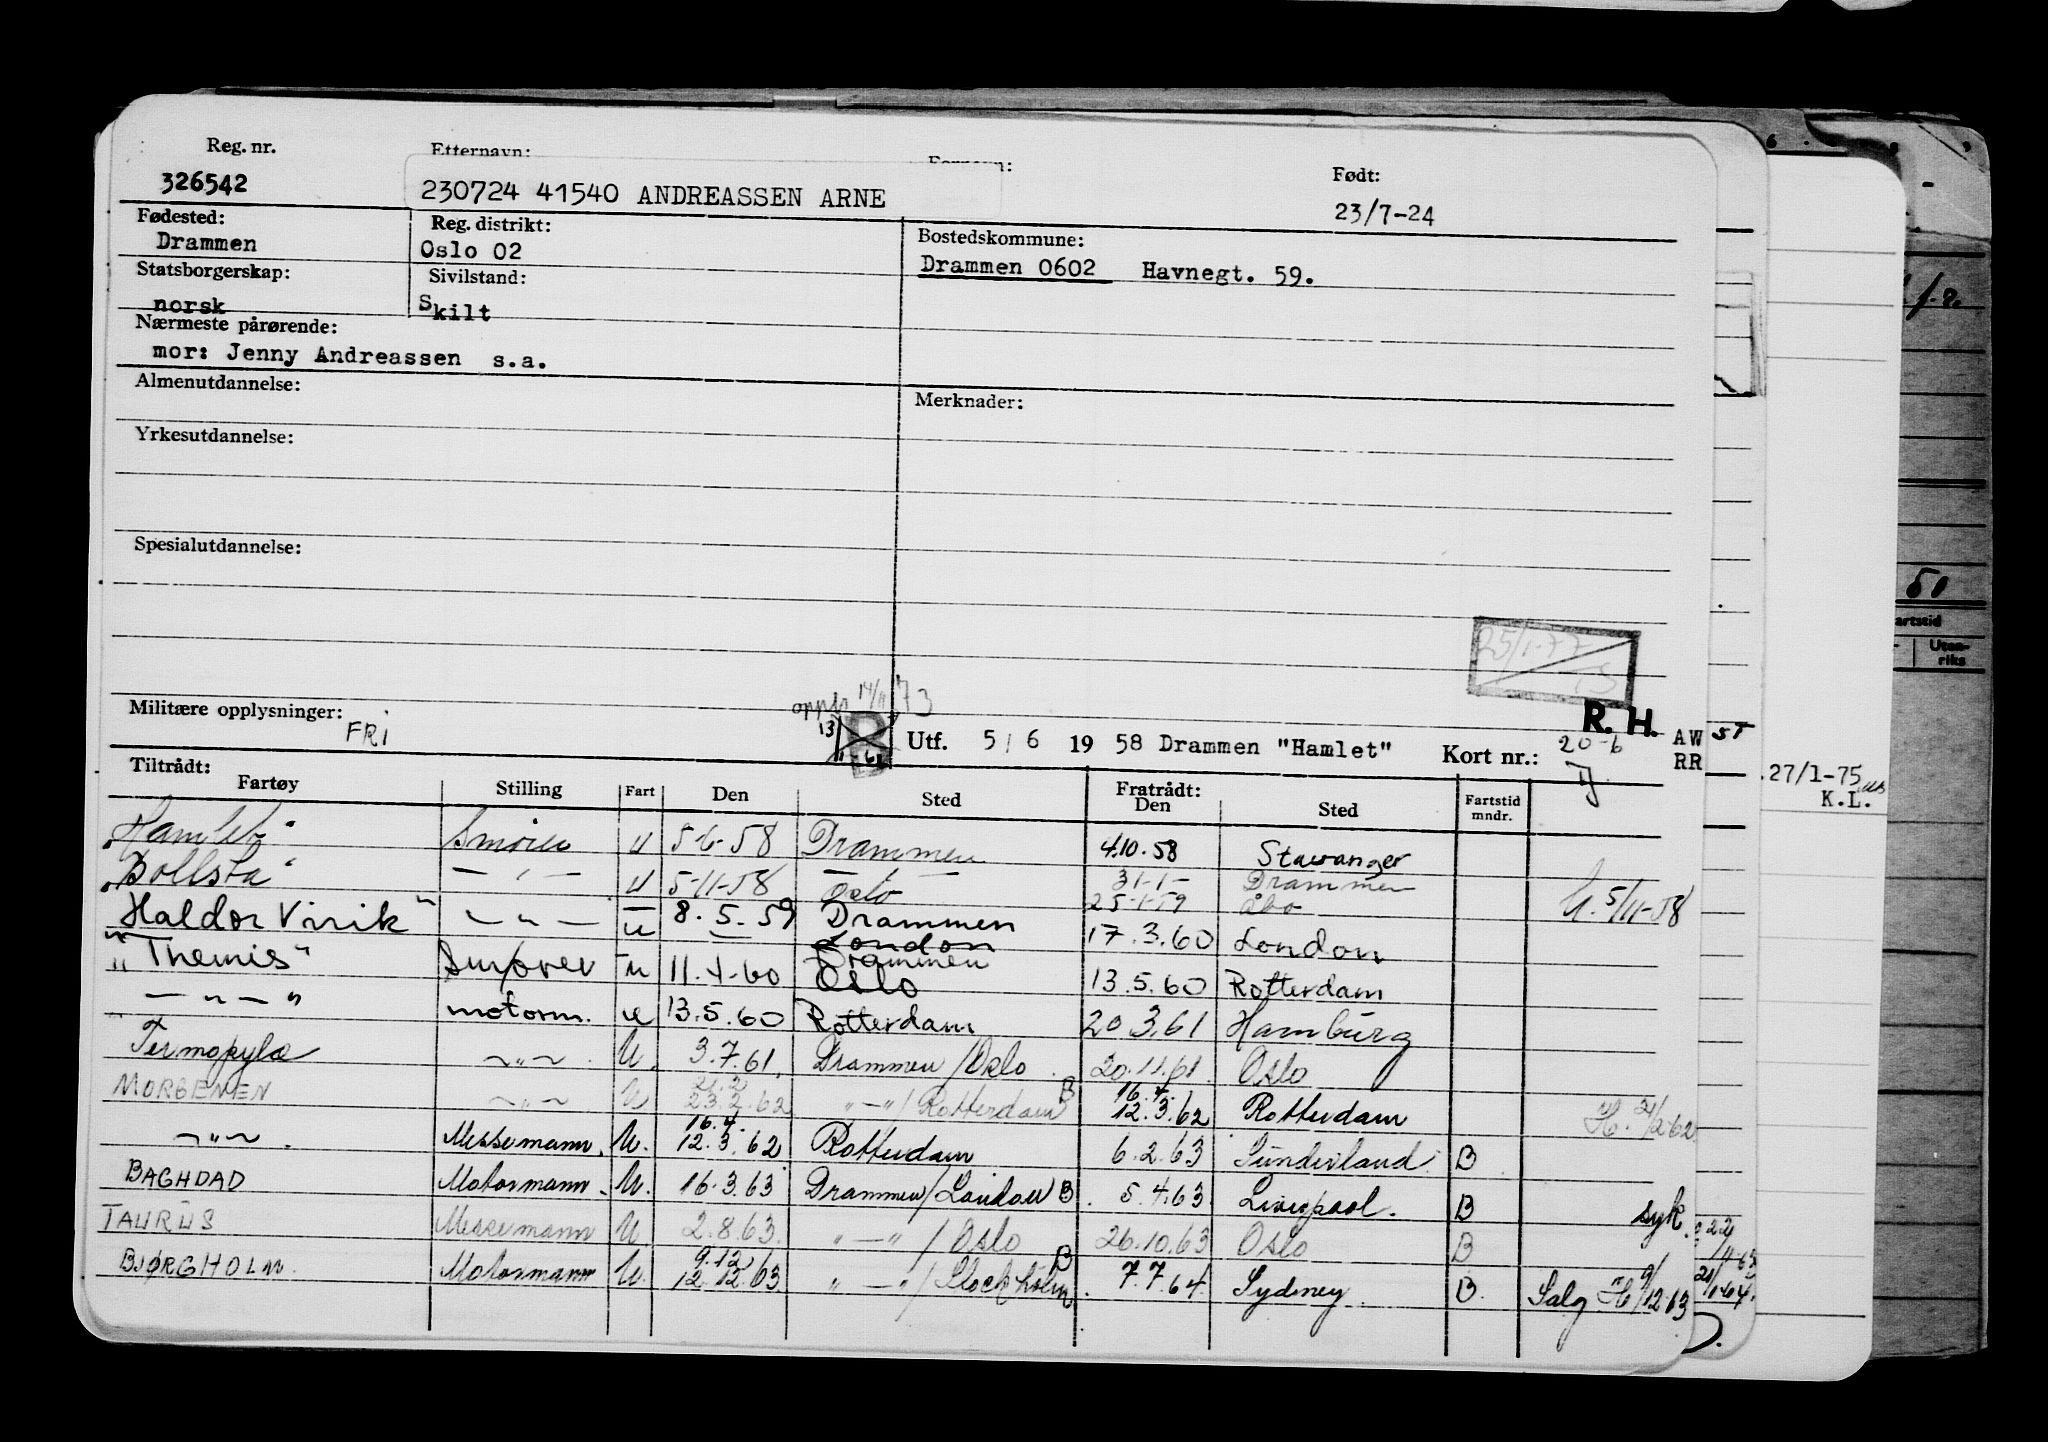 Reg. nr. Etternavn: Fornavn: Født:
326542 230724 41540 ANDREASSEN ARNE 23/7-24
Fødested: Reg. distrikt: Bostedskommune:
Drammen Oslo 02 Drammen 0602 Havnegt. 59.
Statsborgerskap: Sivilstand:
norsk Skilt
Nærmeste pårørende:
mor: Jenny Andreassen s.a.
Almenutdannelse: Merknader:
Yrkesutdannelse:
Spesialutdannelse:
25/1-77
14/11 73
Militære opplysninger: FRI
R. H.
Utf. 5/6 1958 Drammen "Hamlet" Kort nr.: 20-6
AW ST
RR
27/1-75
K.L.
Tiltrådt: Fratrådt:
Fartøy Stilling Fart Den Sted Den Sted Fartstid mndr.
"Hamlet" Smører U 5-6-58 Drammen 4.10.58 Stavanger
"Bollsta" — " — U 5-11-58 Oslo 31-1- Drammen
25-1-59 Åbo 5/11-58
"Haldor Virik" — " — U 8.5.59 Drammen London 17.3.60 London
"Themis" Smører U 11.4.60 Drammen Oslo 13.5.60 Rotterdam
— " — " motorm. U 13.5.60 Rotterdam 20.3.61 Hamburg
Termopylæ — " — U. 3.7.61. Drammen/Oslo 20.11.61 Oslo
MORGENEN — " — U 21.2 23.2.62 " — " / Rotterdam B 16.4. 12.3.62 Rotterdam H. 21/2-62
— " — Messemann. U. 16.4. 12.3.62 Rotterdam 6.2.63 Sunderland B
BAGHDAD Motormann. U. 16.3.63 Drammen/London B. 5.4.63 Liverpool. B syk.
TAURUS Messemann U. 2.8.63. " — " / Oslo 26.10.63 Oslo B
BJØRGHOLM. Motormann U. 9.12 12.12.63 " — " / Stockholm B. 7.7.64. Sydney. B. Salg H 9/12.63
21/1-64.
51
Fartstid
Uten-
riks